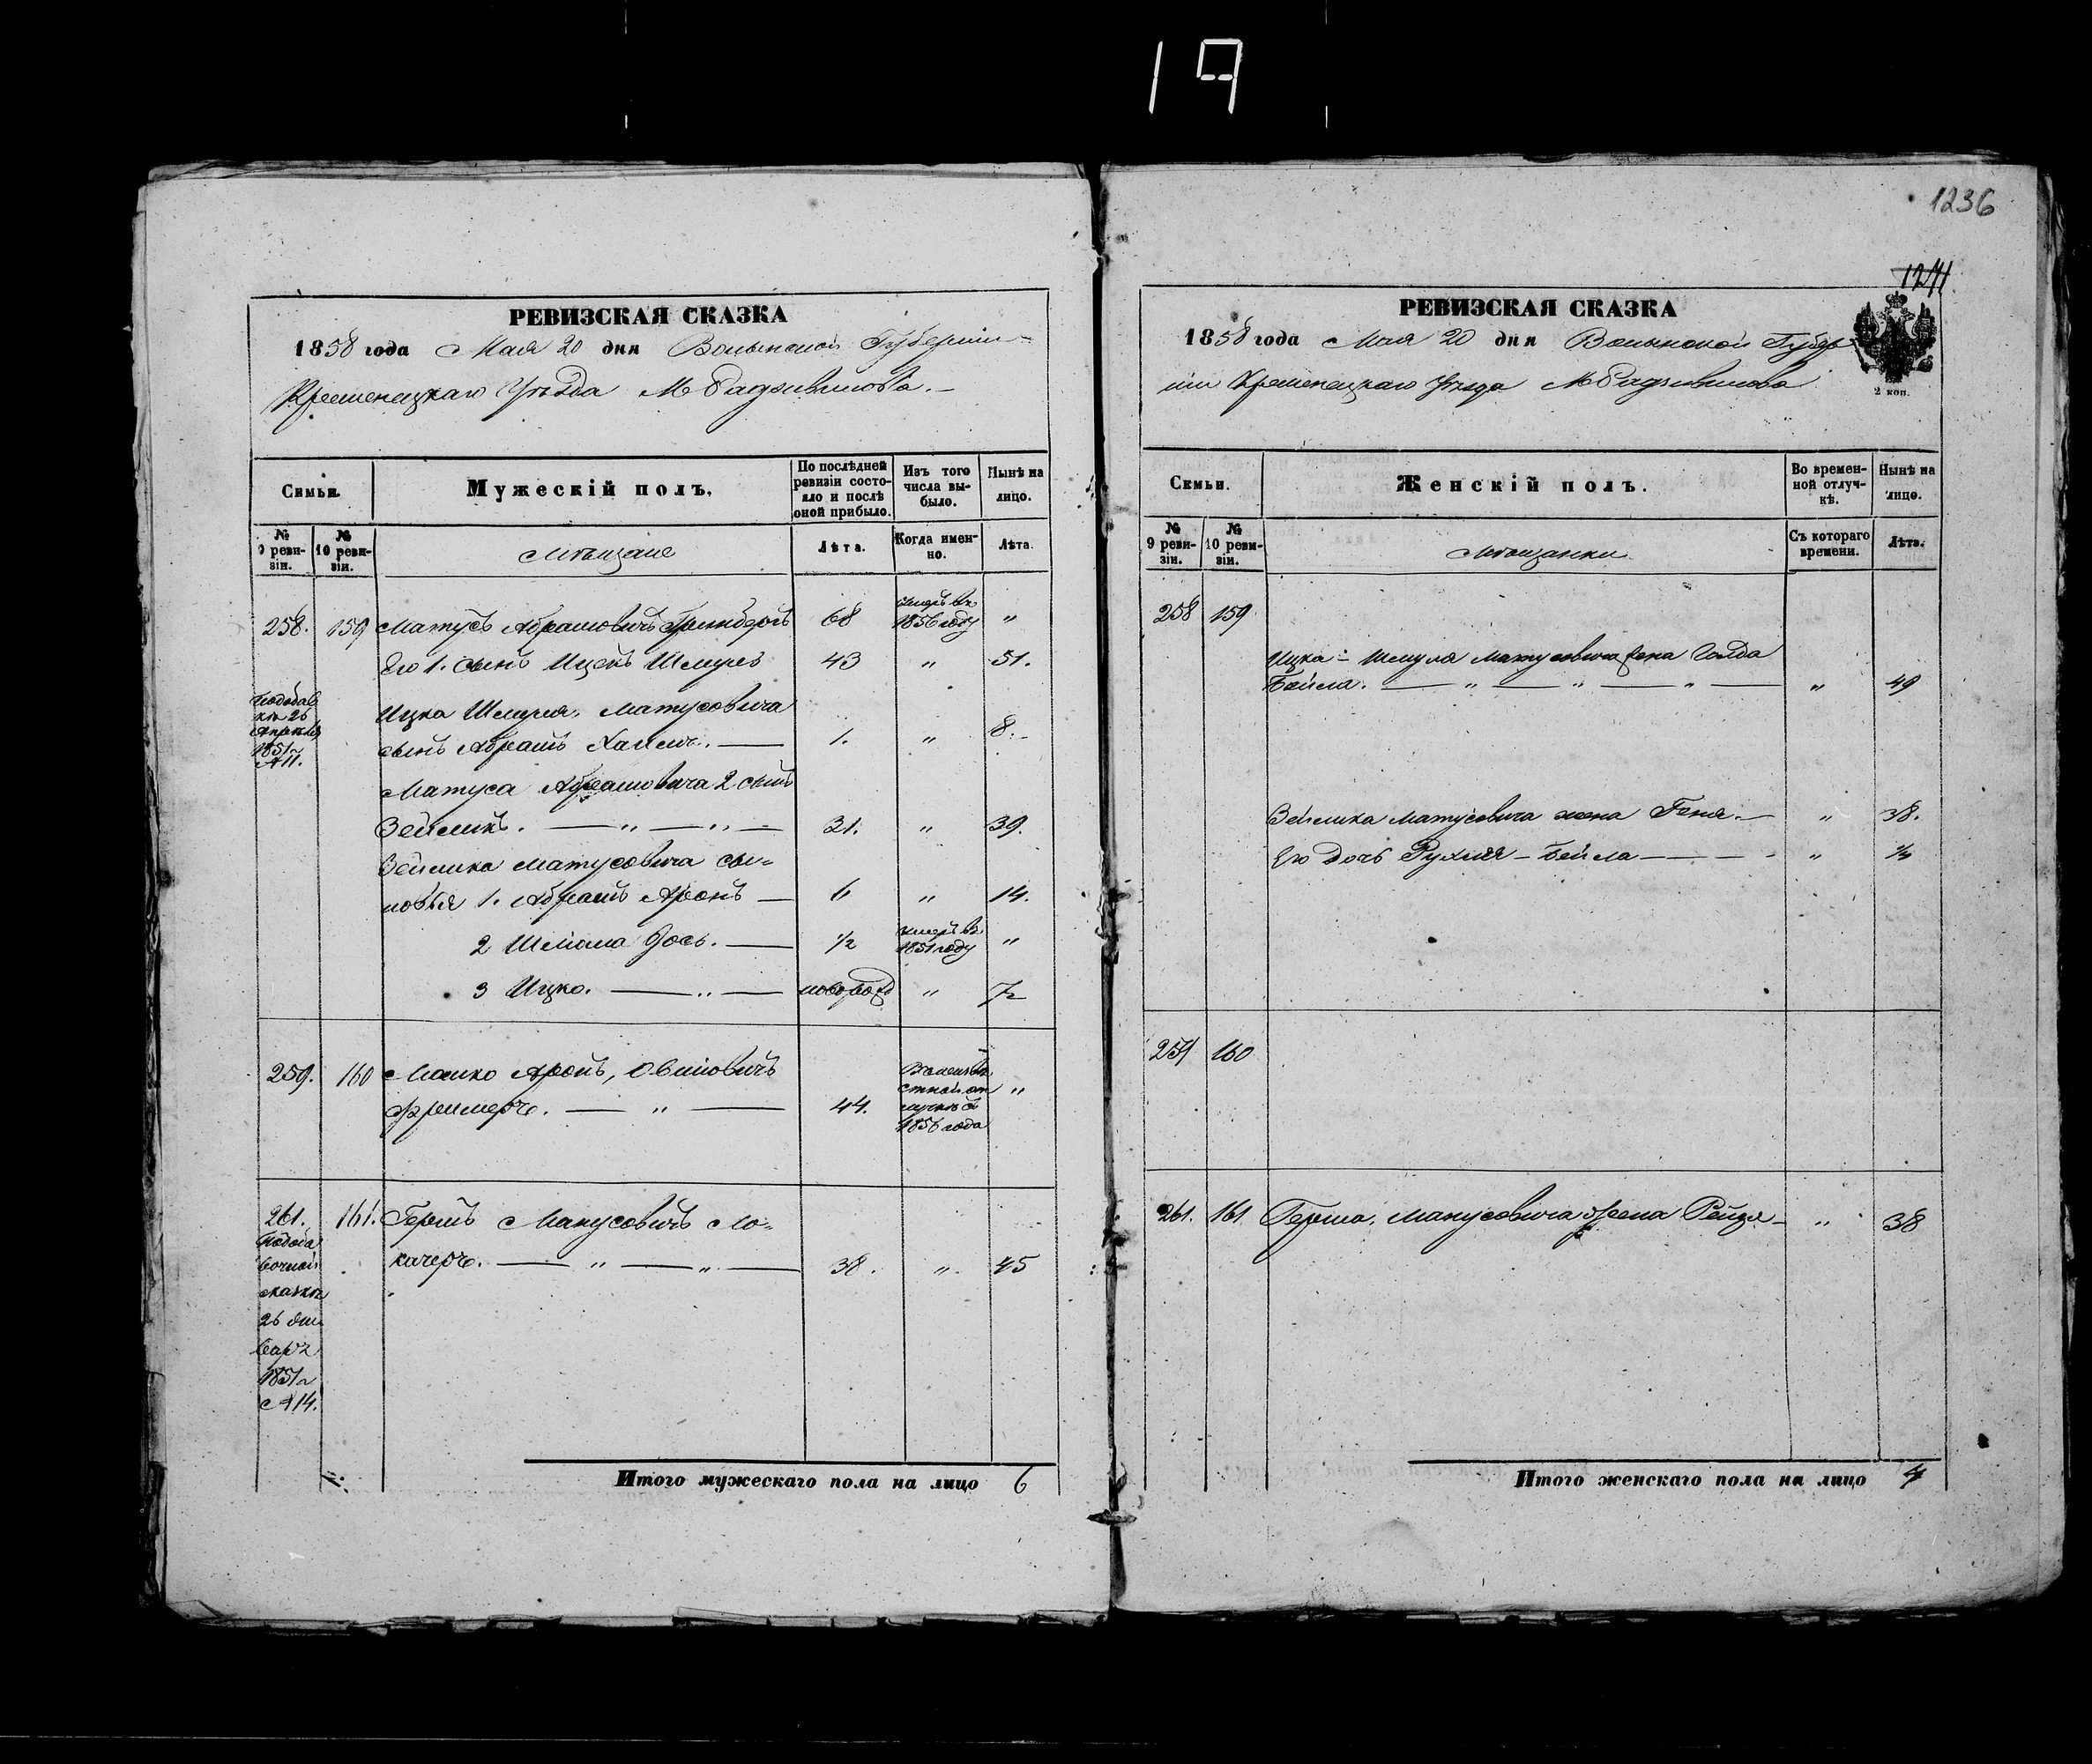 19
1236
1241
РЕВИЗСКАЯ СКАЗКА
1858 года Мая 20 дня Волынской Губерніи
Кременецкаго Уѣзда М Радзивилова.
Семьи.
Мужескій полъ.
По послѣдней ревизіи состояло и послѣ оной прибыло.
Изъ того числа выбыло.
Нынѣ на лицо.
№ 9 ревизіи.
№ 10 ревизіи.
Мѣщане
Лѣта.
Когда именно.
Лѣта.
258. 159 Матусъ Абрамовичъ Гринбергъ 68 умеръ въ 1856 году "
Его 1. сынъ Ицекъ Шмуль 43 " 51.
1851
Ицка Шмуля Матусовича
сынъ Абрамъ Хаимъ. 1. " 8.
Матуса Абрамовича 2 сынъ
Зейликъ. " " 31. " 39.
Зейлика Матусовича сы-
новья 1. Абрамъ Аронъ 6 " 14.
2 Шлiома Іось. 1/2 умеръ въ 1851 году "
3 Ицко. " новорожд "
259. 160 Мошко Аронъ,
" 44. 1856 года "
261. 161. Гершъ Манусовичъ Ло-
качеръ. " " 38. " 45
сказкѣ
26 Ян
варя
1851
№ 14.
Итого мужескаго пола на лицо 6
РЕВИЗСКАЯ СКАЗКА
1858 года Мая 20 дня Волынской Губер
ніи Кременецкаго Уѣзда М Радзивилова
2 коп.
Семьи.
Женскій полъ.
Во временной отлучкѣ.
Нынѣ на лицо.
№ 9 ревизіи.
№ 10 ревизіи.
Мѣщанки
Съ котораго времени.
Лѣта.
258 159
Ицка - Шмуля Матусовича жена Голда
Бейла. " " " " 49
Зейлика Матусовича жена Геня. " 38.
Его дочь Рухля - Бейла "
259 160
261. 161 Герша Манусовича жена Рейзя " 38
Итого женскаго пола на лицо 4